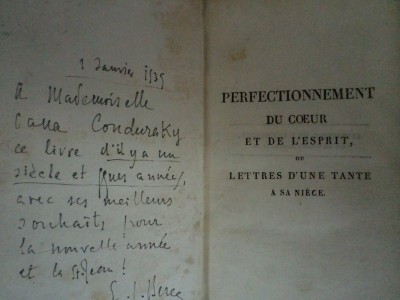 1 Janvier 1939
A Mademoiselle
Oana Conduraky
ce livre d'il y a un
siècle et ques années,
avec ses meilleurs
souhaits pour
la nouvelle année
et la St. Jean !
PERFECTIONNEMENT
DU CŒUR
ET DE L'ESPRIT,
OU
LETTRES D'UNE TANTE
A SA NIÈCE.